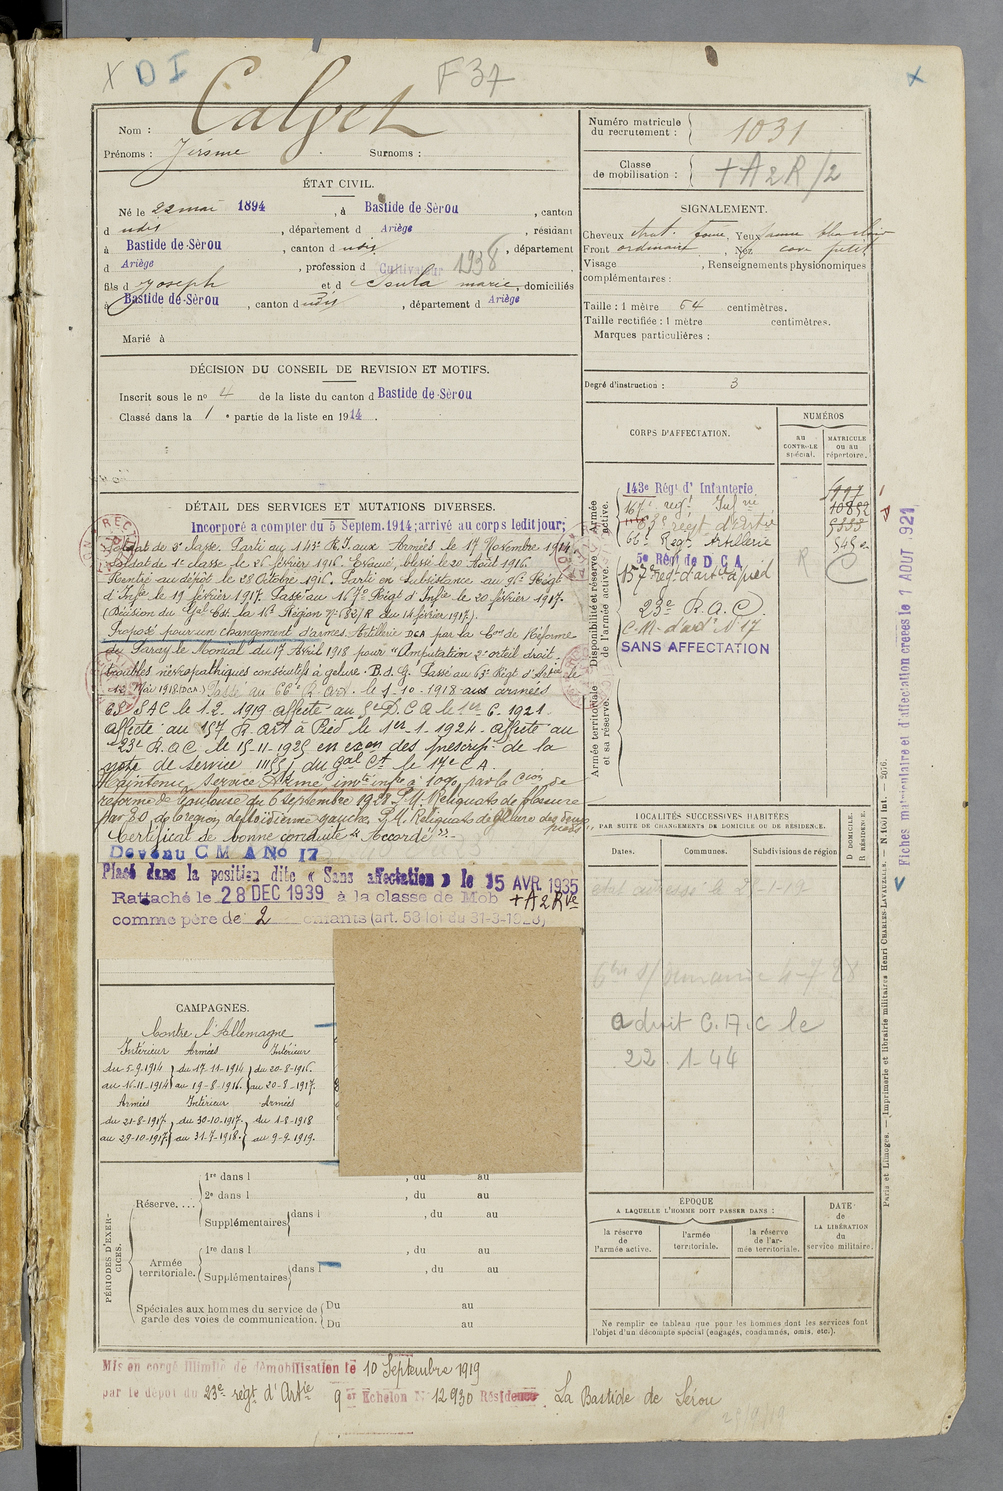 X D I F 37
Nom : Calvet
Prénoms : Jérôme Surnoms :
ÉTAT CIVIL.
Né le 22 mai 1894, à Bastide-de-Sérou, canton
d udit, département d Ariège, résidant
à Bastide de-Sèrou, canton d udit, département
d Ariège, profession d Cultivateur 1938
fils d Joseph et d Soula marie, domiciliés
à Bastide de-Sèrou, canton dudit, département d Ariège
Marié à
DÉCISION DU CONSEIL DE REVISION ET MOTIFS.
Inscrit sous le no 4 de la liste du canton d Bastide de-Sèrou
Classé dans la 1e partie de la liste en 1914.
DÉTAIL DES SERVICES ET MUTATIONS DIVERSES.
Incorporé a compter du 5 Septem.1914; arrivé au corps ledit jour;
Soldat de 2e classe. Parti au 143e R.I. aux Armées le 17 Novembre 1914
Soldat de 1e classe le 26 février 1916. Evacué, blessé le 20 Août 1916
Rentré au dépôt le 28 Octobre 1916. Parti en subsistance au 96e Régt
d'Infie le 19 février 1917. Passé au 167e Régt d'Infie le 20 février 1917.
(Décision du Gal Cdt. la 16e Région No 582/R du 14 février 1917).
Proposé pour un changement d'armes Artillerie DCA par la Con de Réforme
de Paray le Monial du 17 Avril 1918 pour "Amputation 2e orteil droit
troubles névropathiques consécutifs à gelure. B.d.G. Passé au 63e Régt d'Artie le
Mai 1918 (DCA) Passé au 66e R. Art. le 1-10-1918 aux armées
63e SAC le 1.2.1919 affecté au 5e D.C.A le 1er 6.1921.
affecté au 157 R. art à Pied le 1er-1-1924. affecté au
23e R.A.C. le 15-11-1926 en exon des prescrip. de la
note de service du Gal Ct. le 17e C.A.
Maintenu service Armé invté infre à 10% par la Cion de
réforme de Toulouse du 6 Septembre 1928 P.U. Reliquats de blessure
par E.O. de la région deltoïdienne gauche. P.U. Reliquats de gelure des deux pieds
Certificat de bonne conduite "Accordé".-
Devenu C M A No 17
Placé dans la position dite « Sans affectation » le 15 AVR 1935
Rattaché le 28 DEC 1939 à la classe de Mob + A2Rve
comme père de 2 enfants (art. 58 loi du 31-3-1928)
CAMPAGNES.
Contre l'Allemagne
Intérieur Armées Intérieur
du 5-9-1914 } du 17-11-1914 } du 20-8-1916.
au 16-11-1914 } au 19-8-1916. } au 20-8-1917.
Armées Intérieur Armées
du 21-8-1917. } du 30-10-1917. } du 1-8-1918
au 29-10-1917. } au 31-7-1918. } au 9-9-1919.
PÉRIODES D'EXERCICES.
Réserve....
1re dans l , du au
2e dans l , du au
Supplémentaires dans l , du au
Armée territoriale.
1re dans l , du au
Supplémentaires dans l , du au
Spéciales aux hommes du service de garde des voies de communication. Du au
Du au
Mis en congé illimité de démobilisation le 10 Septembre 1919
par le dépôt du 23e régt d'Artie 9er Echelon No 12930 Résidence La Bastide de Sérou
Numéro matricule du recrutement : 1031
Classe de mobilisation : + A2R/2
SIGNALEMENT.
Cheveux chat. foncé, Yeux
Front ordinaire, Nez cave petit
Visage , Renseignements physionomiques
complémentaires :
Taille : 1 mètre 64 centimètres.
Taille rectifiée : 1 mètre centimètres.
Marques particulières :
Degré d'instruction : 3
CORPS D'AFFECTATION.
NUMÉROS
AU CONTRÔLE spécial.
MATRICULE ou au répertoire.
Armée active.
Disponibilité et réserve de l'armée active.
Armée territoriale et sa réserve.
143e Régt d' Infanterie
167e regt Inf rie 10852
63e régt d'Artie 5333
66e Regt Artillerie
5e Régt de D C A
157e Regt d'art à pied
23e R.A.C.
C.M. d'art No 17
SANS AFFECTATION
R
LOCALITÉS SUCCESSIVES HABITÉES
PAR SUITE DE CHANGEMENTS DE DOMICILE OU DE RÉSIDENCE.
Dates. Communes. Subdivisions de région
D DOMICILE. R RÉSIDENCE.
a droit C.A.C le
22.1-44
ÉPOQUE
A LAQUELLE L'HOMME DOIT PASSER DANS :
la réserve de l'armée active.
l'armée territoriale.
la réserve de l'armée territoriale.
DATE de LA LIBÉRATION du service militaire.
Ne remplir ce tableau que pour les hommes dont les services font
l'objet d'un décompte spécial (engagés, condamnés, omis, etc.).
Fiches matriculaire et d'affectation créées le 1 AOUT .921
Paris et Limoges. — Imprimerie et librairie militaires Henri CHARLES-LAVAUZELLE. — N. 1001 Int. — 2076.